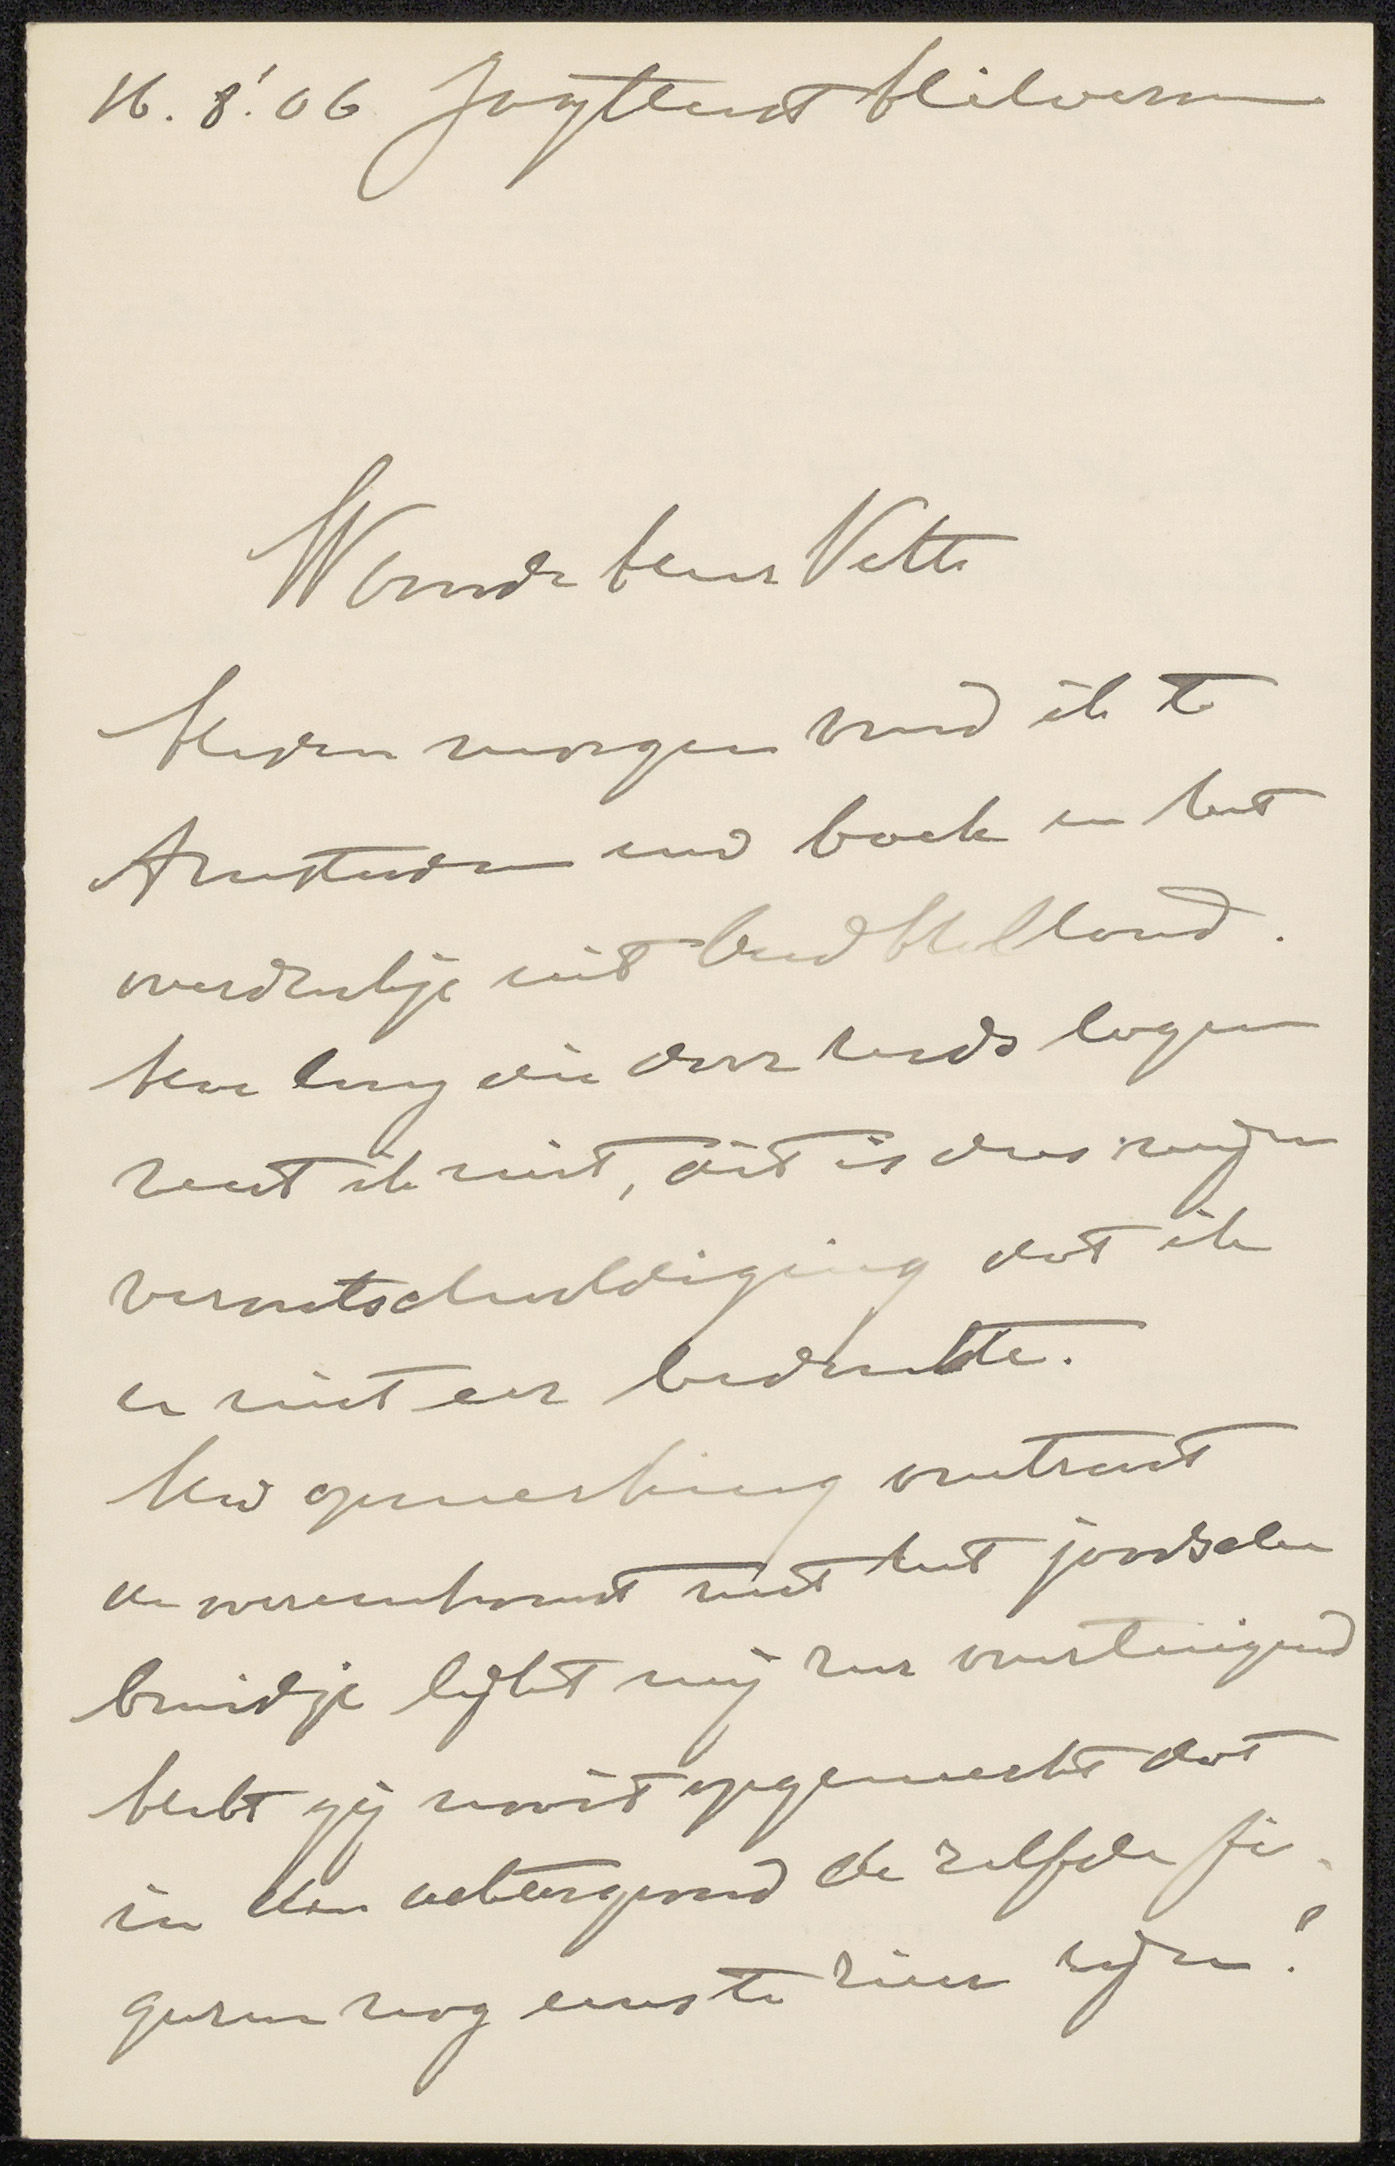 16.8.'06 Jagtlust Hilversum
Waarde Heer Veth
Heden morgen vond ik te
Amsterdam uw boek en het
overdrukje uit Oud Holland.
Hoe lang die daar reeds lagen
weet ik niet, dit is dus mijn
verontschuldiging dat ik
u niet eer bedankte.
Uw opmerking omtrent
de overeenkomst met het joodsche
bruidje lijkt mij zeer overtuigend
hebt gij nooit opgemerkt dat
in den achtergrond de zelfde fi-
guren nog eens te zien zijn?